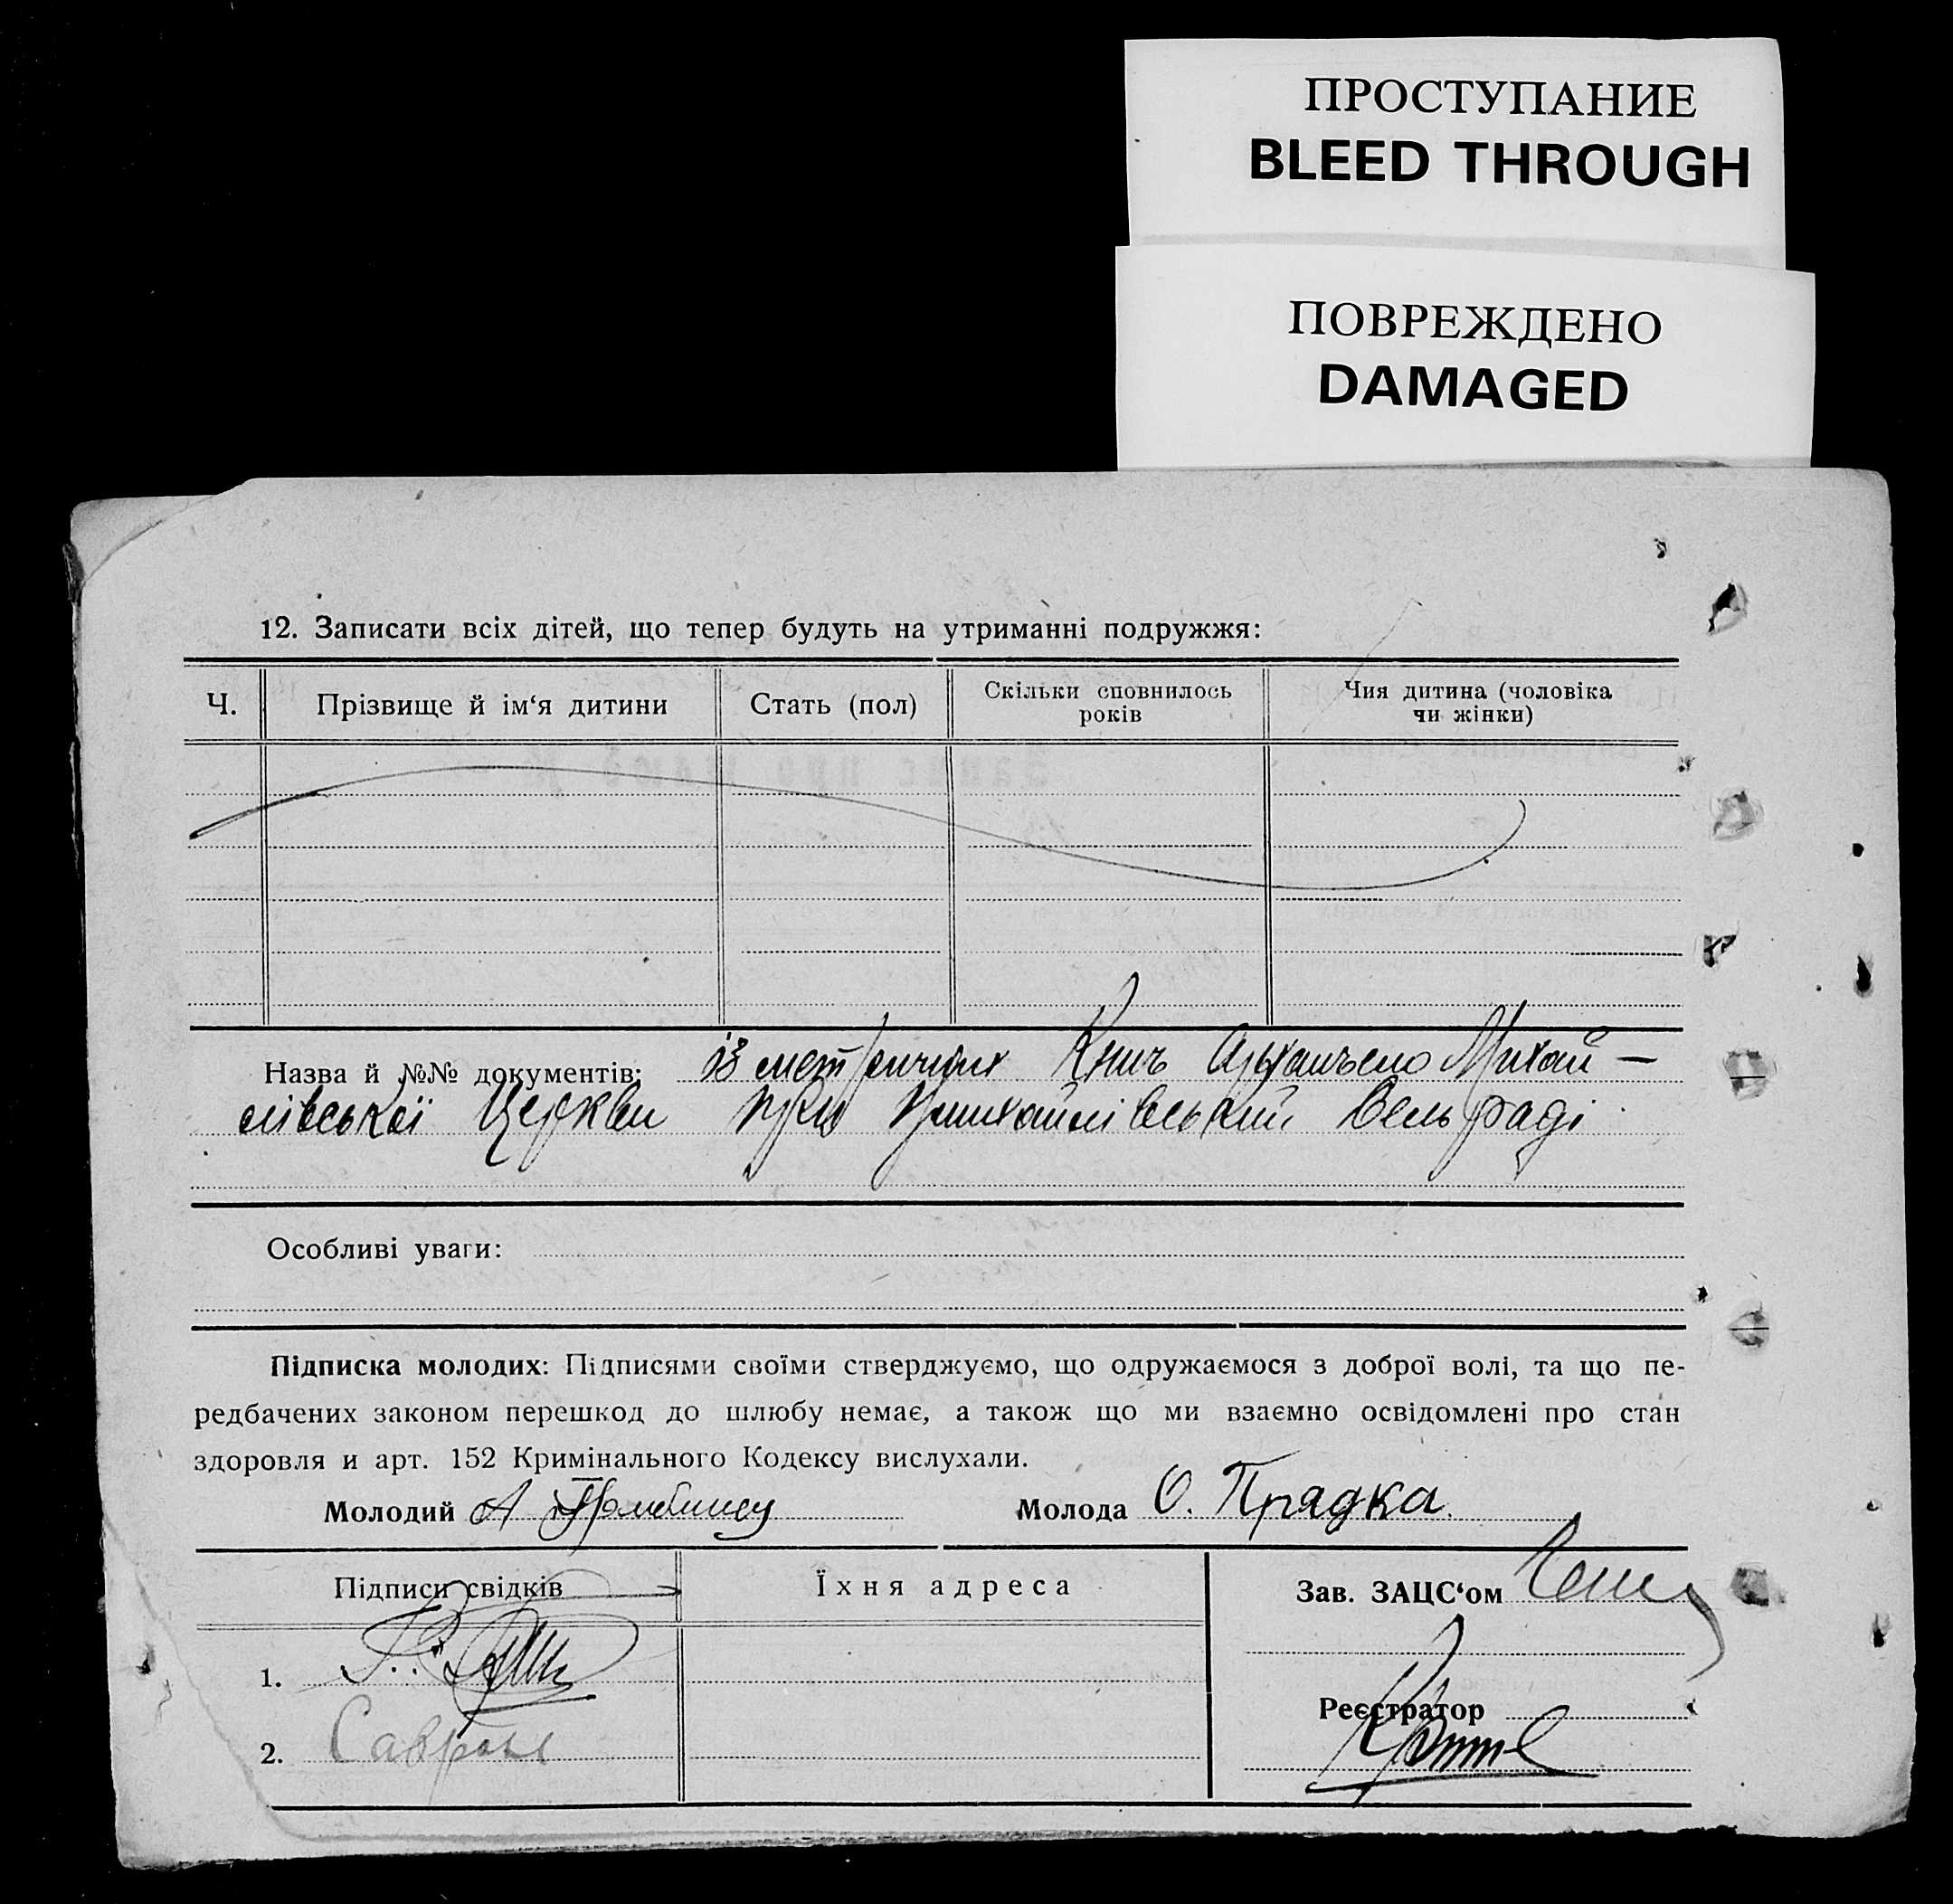 ПРОСТУПАНИЕ
BLEED THROUGH
ПОВРЕЖДЕНО
DAMAGED
12. Записати всіх дітей, що тепер будуть на утриманні подружжя:
Ч. Прізвище й ім‘я дитини Стать (пол) Скільки сповнилось років Чия дитина (чоловіка чи жінки)
Назва й №№ документів: із метричних Книг Михай-
лівської Церкви при
Особливі уваги:
Підписка молодих: Підписями своїми стверджуємо, що одружаємося з доброї волі, та що пе-
редбачених законом перешкод до шлюбу немає, а також що ми взаємно освідомлені про стан
здоровля и арт. 152 Кримінального Кодексу вислухали.
Молодий А Молода О. Прядка
Підписи свідків Їхня адреса Зав. ЗАЦС‘ом
1.
Реєстратор
2.